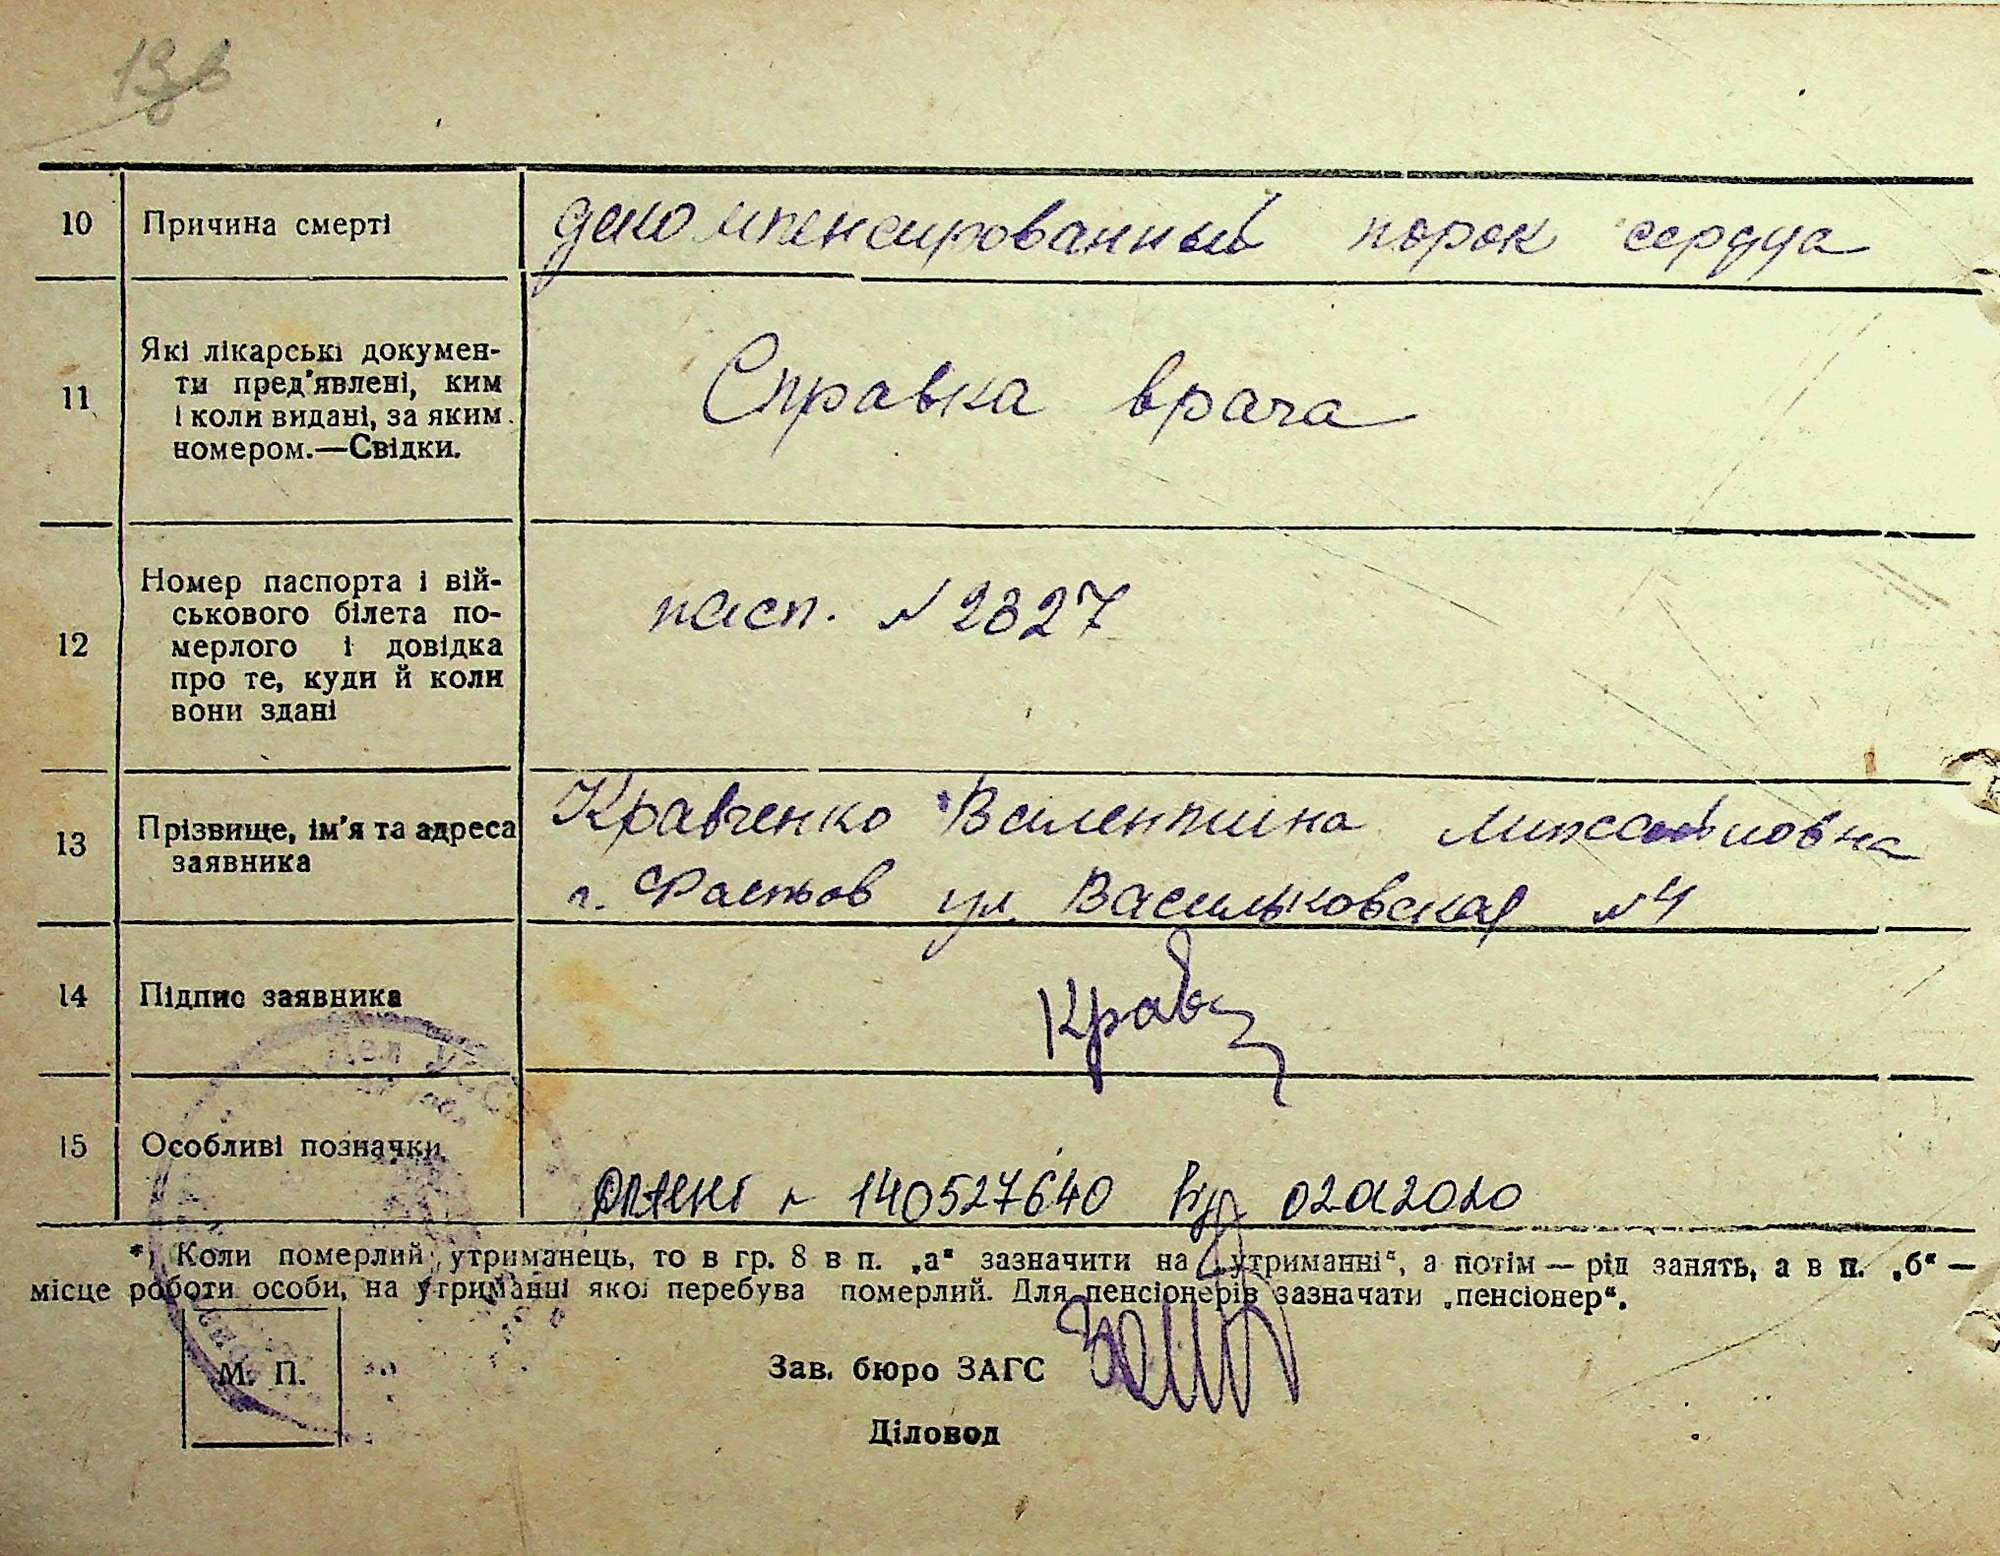 10 Причина смерті декомпенсированный порок сердца
11 Які лікарські докумен-
ти пред'явлені, ким
і коли видані, за яким
номером.—Свідки.
Справка врача
12 Номер паспорта і вій-
ськового білета по-
мерлого і довідка
про те, куди й коли
вони здані
пасп. № 2827
13 Прізвище, ім'я та адреса
заявника
Кравченко Валентина
г. Фастов ул. Васильковская № 4
14 Підпис заявника Кравч
15 Особливі позначки
№ 140527640 02012020
*) Коли померлий утриманець, то в гр. 8 в п. „а" зазначити на „утриманні", а потім — рід занять, а в п. „б" —
місце роботи особи, на утриманні якої перебува померлий. Для пенсіонерів зазначати „пенсіонер".
М. П.
Зав. бюро ЗАГС
Діловод